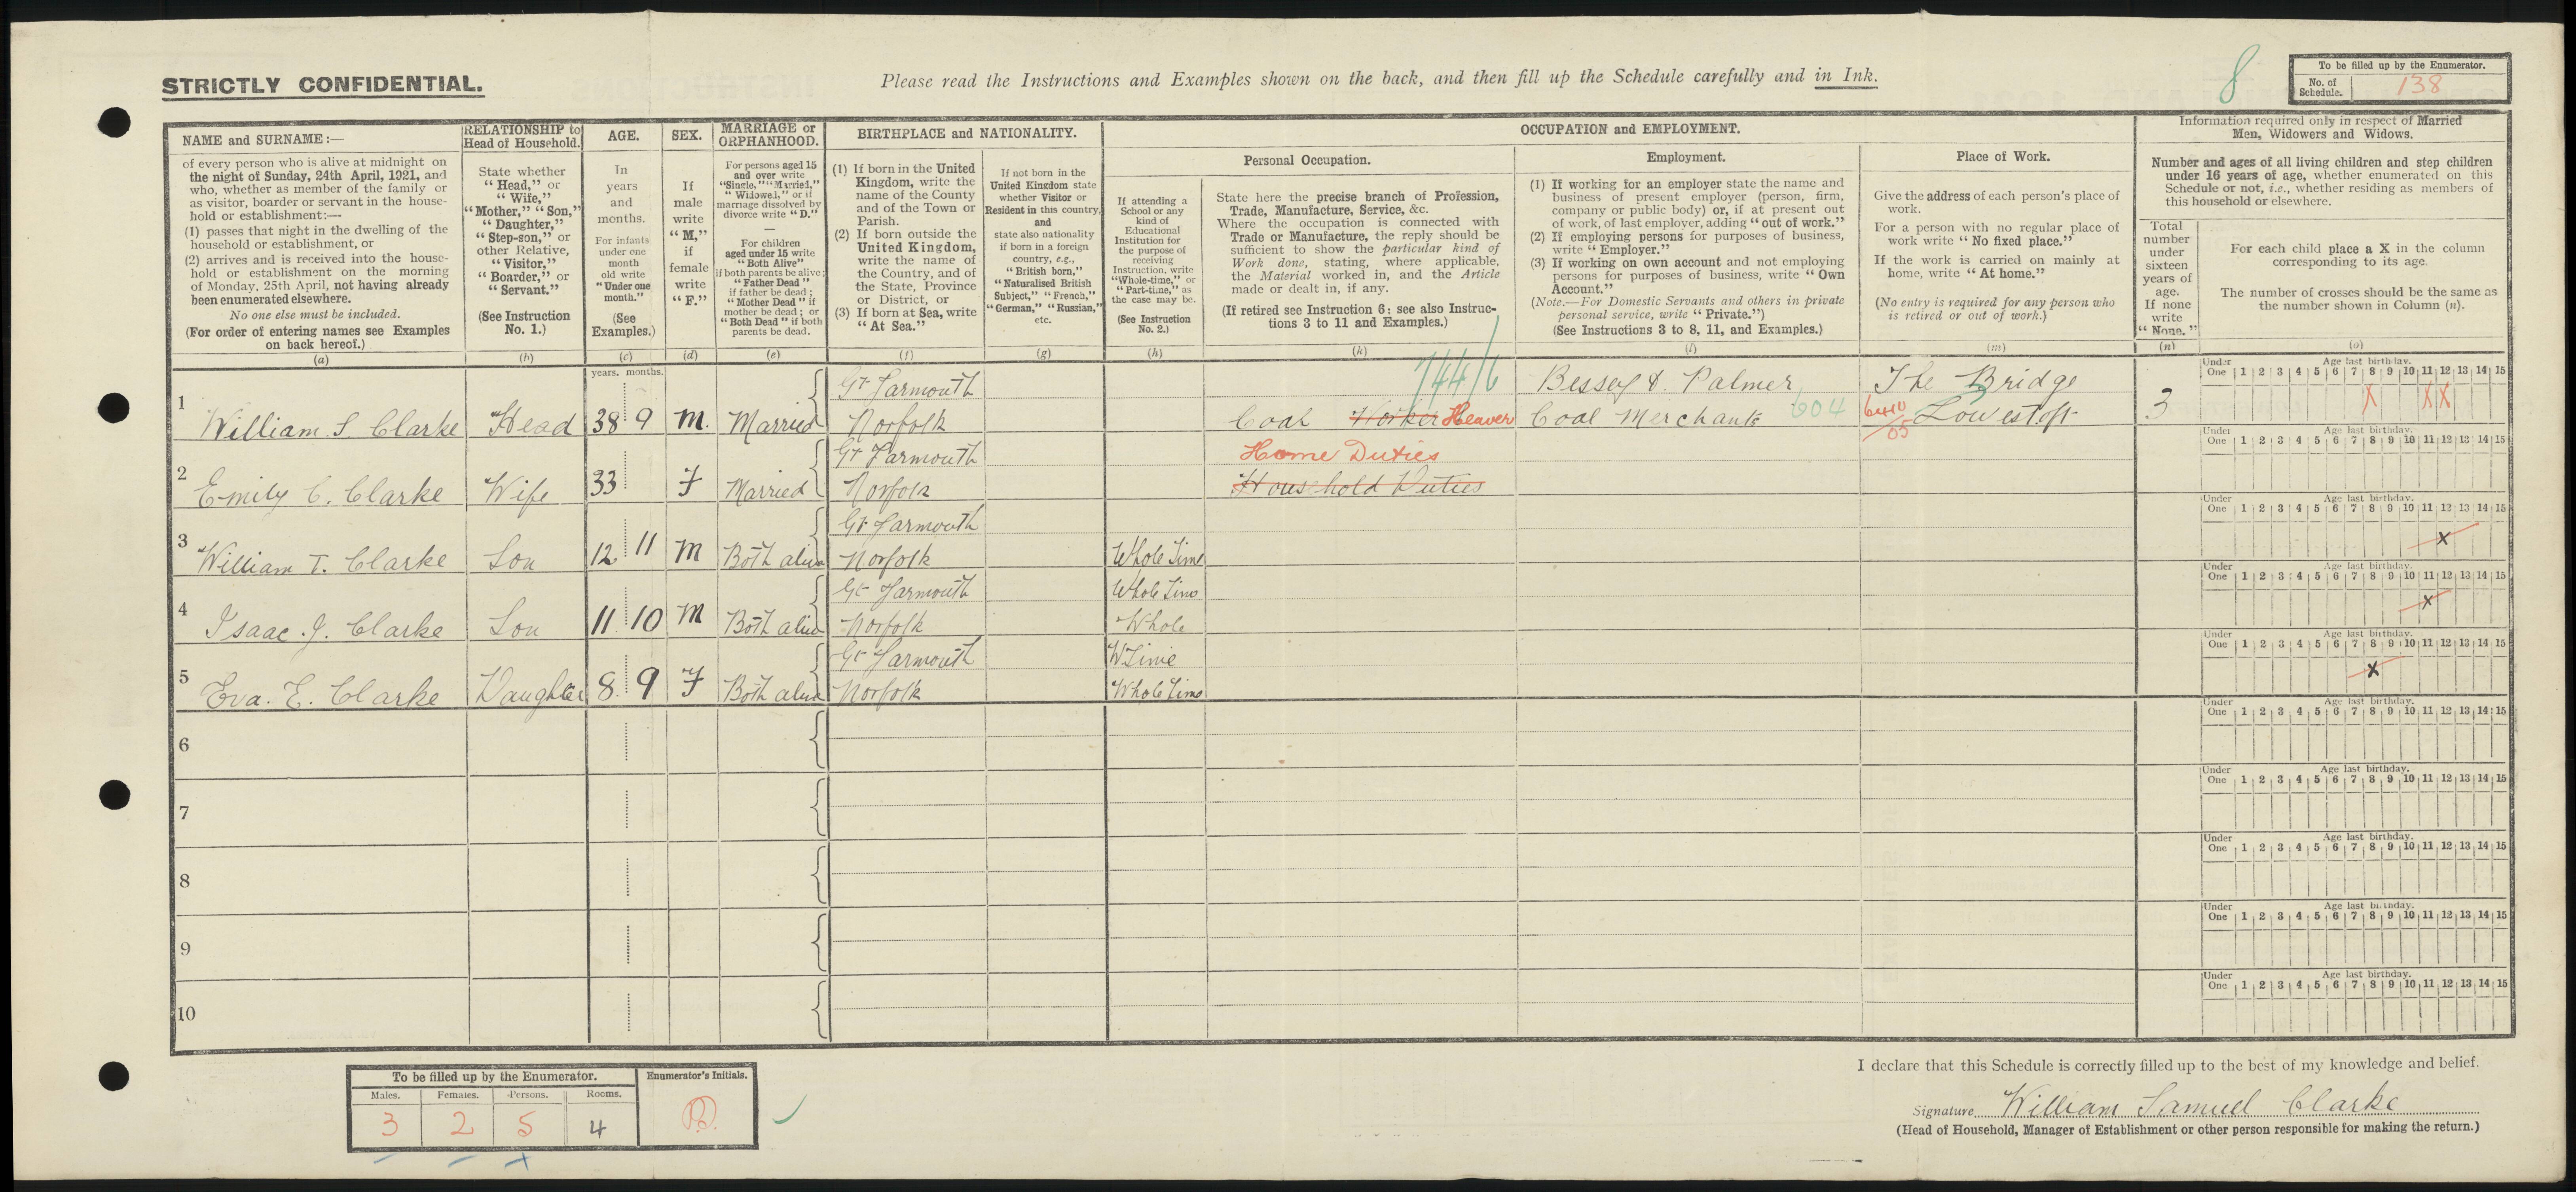 STRICTLY CONFIDENTIAL.
Please read the Instructions and Examples shown on the back, and then fill up the Schedule carefully and in Ink.
8
To be filled up by the Enumerator.
No. of Schedule. 138
NAME and SURNAME:—
of every person who is alive at midnight on
the night of Sunday, 24th April, 1921, and
who, whether as member of the family or
as visitor, boarder or servant in the house-
hold or establishment:—
(1) passes that night in the dwelling of the
household or establishment, or
(2) arrives and is received into the house-
hold or establishment on the morning
of Monday, 25th April, not having already
been enumerated elsewhere.
No one else must be included.
(For order of entering names see Examples
on back hereof.)
(a)
RELATIONSHIP to
Head of Household.
State whether
“Head,” or
“Wife,”
“Mother,” “Son,”
“Daughter,”
“Step-son,” or
other Relative,
“Visitor,”
“Boarder,” or
“Servant.”
(See Instruction
No. 1.)
(b)
AGE.
In
years
and
months.
For infants
under one
month
old write
“Under one
month.”
(See
Examples.)
(c)
SEX.
If
male
write
“M,”
if
female
write
“F.”
(d)
MARRIAGE or
ORPHANHOOD.
For persons aged 15
and over write
“Single,” “Married,”
“Widowed,” or if
marriage dissolved by
divorce write “D.”
—
For children
aged under 15 write
“Both Alive”
if both parents be alive;
“Father Dead”
if father be dead;
“Mother Dead” if
mother be dead; or
“Both Dead” if both
parents be dead.
(e)
BIRTHPLACE and NATIONALITY.
(1) If born in the United
Kingdom, write the
name of the County
and of the Town or
Parish.
(2) If born outside the
United Kingdom,
write the name of
the Country, and of
the State, Province
or District, or
(3) If born at Sea, write
“At Sea.”
(f)
If not born in the
United Kingdom state
whether Visitor or
Resident in this country,
and
state also nationality
if born in a foreign
country, e.g.,
“British born,”
“Naturalised British
Subject,” “French,”
“German,” “Russian,”
etc.
(g)
OCCUPATION and EMPLOYMENT.
If attending a
School or any
kind of
Educational
Institution for
the purpose of
receiving
Instruction, write
“Whole-time,” or
“Part-time,” as
the case may be.
(See Instruction
No. 2.)
(h)
Personal Occupation.
State here the precise branch of Profession,
Trade, Manufacture, Service, &c.
Where the occupation is connected with
Trade or Manufacture, the reply should be
sufficient to show the particular kind of
Work done, stating, where applicable,
the Material worked in, and the Article
made or dealt in, if any.
(If retired see Instruction 6: see also Instruc-
tions 3 to 11 and Examples.)
(k)
Employment.
(1) If working for an employer state the name and
business of present employer (person, firm,
company or public body) or, if at present out
of work, of last employer, adding “out of work.”
(2) If employing persons for purposes of business,
write “Employer.”
(3) If working on own account and not employing
persons for purposes of business, write “Own
Account.”
(Note.—For Domestic Servants and others in private
personal service, write “Private.”)
(See Instructions 3 to 8, 11, and Examples.)
(l)
Place of Work.
Give the address of each person's place of
work.
For a person with no regular place of
work write “No fixed place.”
If the work is carried on mainly at
home, write “At home.”
(No entry is required for any person who
is retired or out of work.)
(m)
Information required only in respect of Married
Men, Widowers and Widows.
Number and ages of all living children and step children
under 16 years of age, whether enumerated on this
Schedule or not, i.e., whether residing as members of
this household or elsewhere.
Total
number
under
sixteen
years of
age.
If none
write
“None.”
(n)
For each child place a X in the column
corresponding to its age.
The number of crosses should be the same as
the number shown in Column (n).
(o)
years. months.
Under One Age last birthday. 1 2 3 4 5 6 7 8 9 10 11 12 13 14 15
Gt Yarmouth 744/6 Bessey & Palmer The Bridge
1 William S. Clarke Head 38 9 M. Married Norfolk Coal Worker Heaver Coal Merchants 604 Lowestoft 3 X X X
Under One Age last birthday. 1 2 3 4 5 6 7 8 9 10 11 12 13 14 15
Gt Yarmouth Home Duties
2 Emily C. Clarke Wife 33 F Married Norfolk Household Duties
Under One Age last birthday. 1 2 3 4 5 6 7 8 9 10 11 12 13 14 15
Gt Yarmouth
3 William T. Clarke Son 12 11 M Both alive Norfolk Whole Time X
Under One Age last birthday. 1 2 3 4 5 6 7 8 9 10 11 12 13 14 15
Gt Yarmouth Whole Time
4 Isaac J. Clarke Son 11 10 M Both alive Norfolk Whole X
Under One Age last birthday. 1 2 3 4 5 6 7 8 9 10 11 12 13 14 15
Gt Yarmouth W Time
5 Eva. E. Clarke Daughter 8 9 F Both alive Norfolk Whole Time X
Under One Age last birthday. 1 2 3 4 5 6 7 8 9 10 11 12 13 14 15
6
Under One Age last birthday. 1 2 3 4 5 6 7 8 9 10 11 12 13 14 15
7
Under One Age last birthday. 1 2 3 4 5 6 7 8 9 10 11 12 13 14 15
8
Under One Age last birthday. 1 2 3 4 5 6 7 8 9 10 11 12 13 14 15
9
Under One Age last birthday. 1 2 3 4 5 6 7 8 9 10 11 12 13 14 15
10
To be filled up by the Enumerator.
Males. Females. Persons. Rooms.
3 2 5 4
Enumerator's Initials.
I declare that this Schedule is correctly filled up to the best of my knowledge and belief.
Signature William Samuel Clarke
(Head of Household, Manager of Establishment or other person responsible for making the return.)